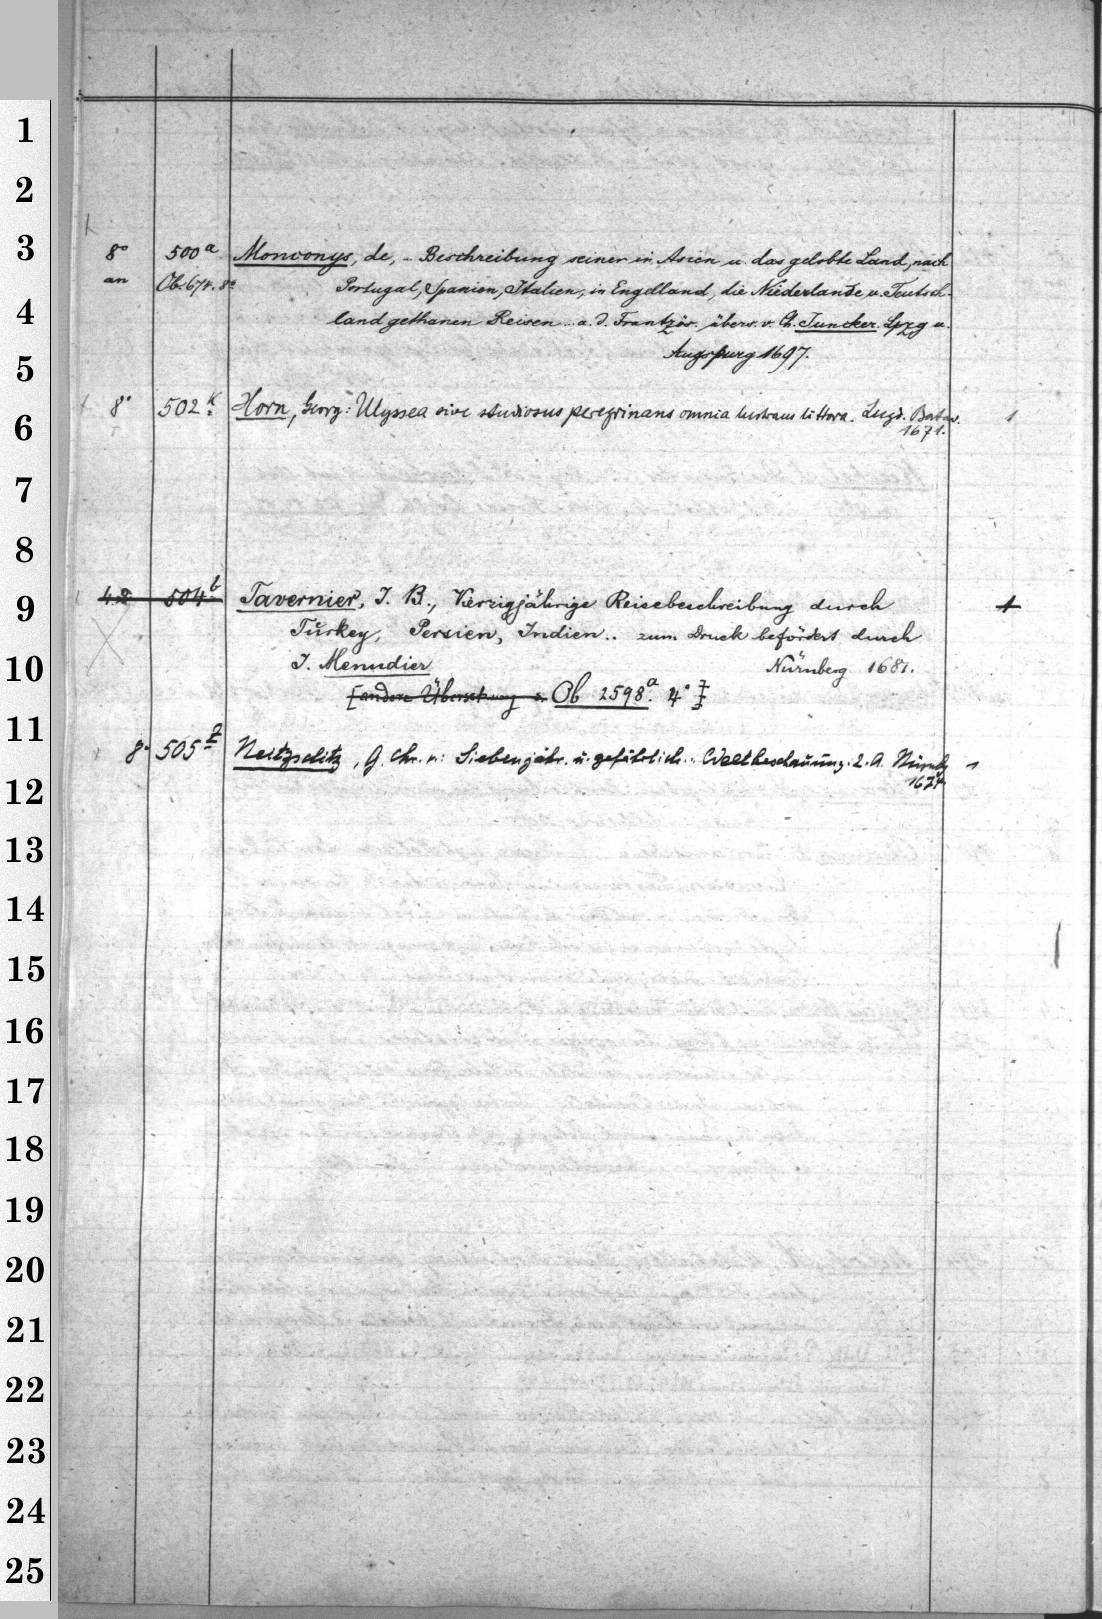 1
2
3
8° 500a Monconys, de, .. Beschreibung seiner in Asien u. das gelobte Land, nach
an Ob 674. 8° Portugal, Spanien, Italien, in Engelland, die Niederlande u. Teutsch-
4
land gethanen Reisen .. a. d. Frantzös. übers. v. Ch. Juncker. Lpzg u.
Augspurg 1697.
5
8° 502k Horn, Georg: Ulyssea sive studiosus peregrinans omnia lustrans littora. Lugd. Batav. 1
6
1671.
7
8
9
4° 504b Tavernier, J. B., Vierzigjährige Reisebeschreibung durch 1
Türkey, Persien, Indien .. zum Druck befördert durch
10
J. Menudier Nürnberg 1681.
[andere Übersetzung s. Ob 2598a. 4°]
11
8° 505z Neitzschitz, G. Chr. v.: Siebenjähr. u. gefährlich. .. Weltbeschauung. 2. A. Nürnbg 1
12
1674.
13
14
15
16
17
18
19
20
21
22
23
24
25